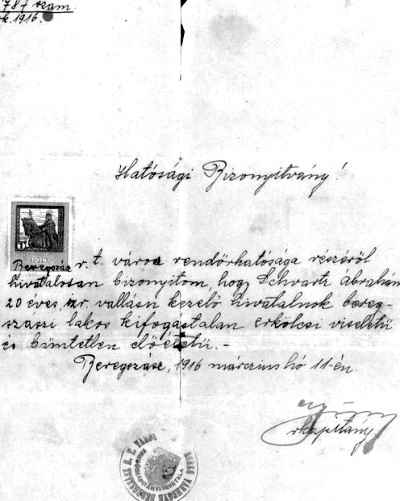 787 szám
1916.
Hatósági Bizonyitvány!
1914
Beregszász r. t. város rendőrhatósága részéről
hivatalosan bizonyitom, hogy Schvartz Ábrahám
20 éves, izr. vallásu kezelő hivatalnok bereg-
szászi lakos kifogástalan erkölcsi viseletü
és büntetlen előéletü. -
Beregszász, 1916 márczius hó 11-én
rkapitány